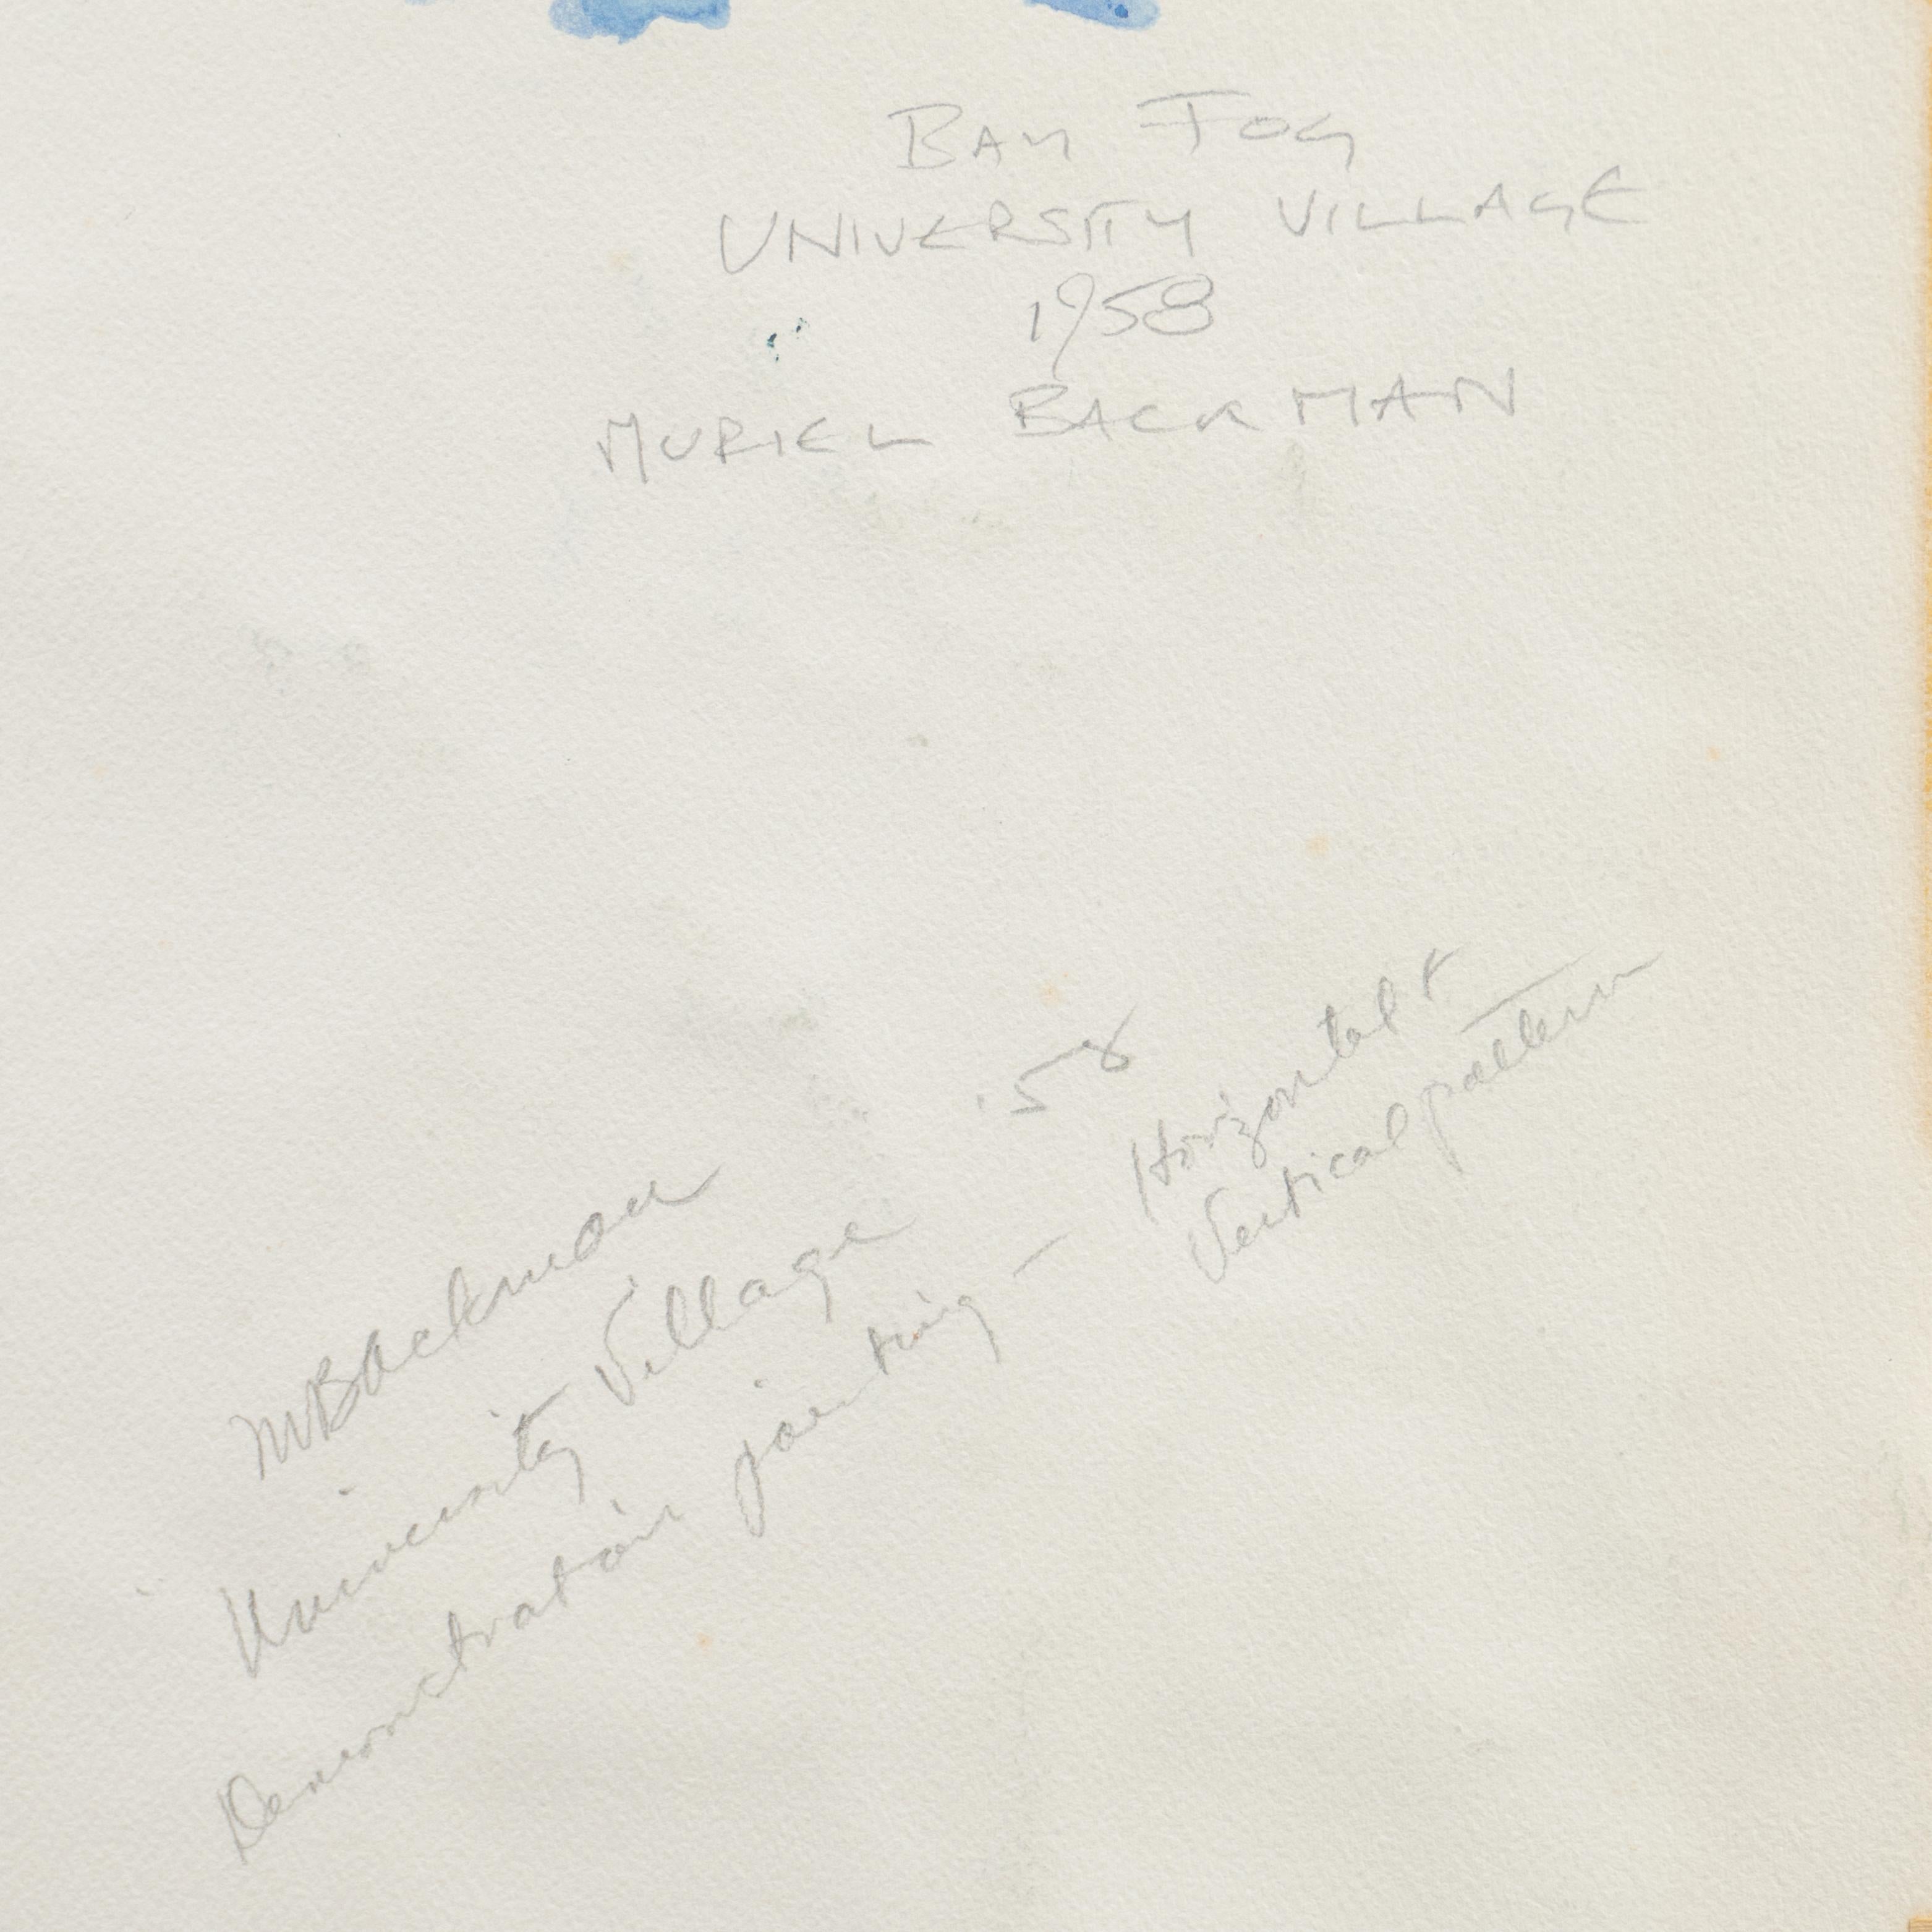 BAY FOG
UNIVERSITY VILLAGE
1958
MURIEL BACKMAN
MBackman
University Village '58
Demonstration jointing — Horizontal +
Vertical pattern